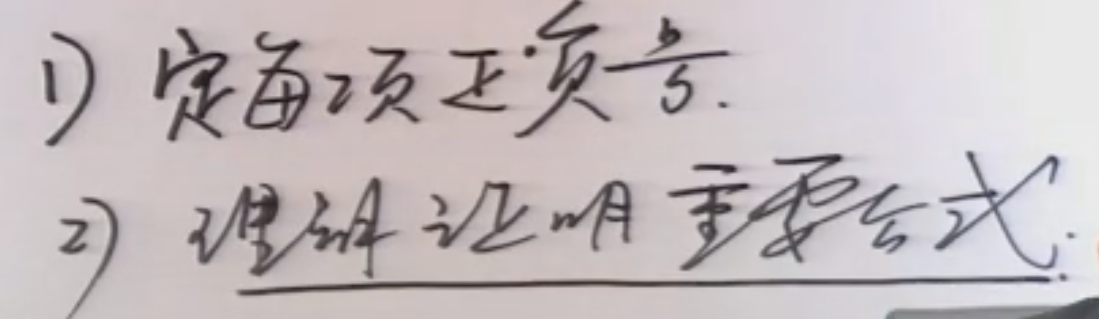 1) 定每项正负号.
2) 理解证明主要公式.